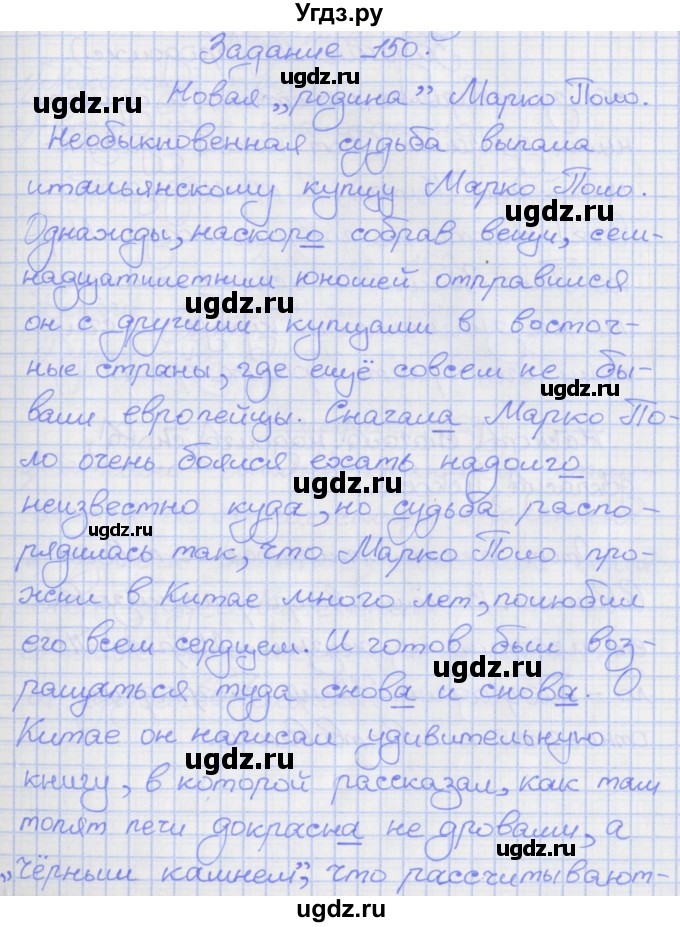 Угдз.ру
Задание 150.
ugdz.ru
ugdz.ru
Новая „родина” Марко Поло.
ugdz.ru
Необыкновенная судьба выпала
итальянскому купцу Марко Поло.
ugdz.ru
Однажды, наскоро собрав вещи, сем-
надцатилетним юношей отправился
ugdz.ru
он с другими купцами в восточ-
ные страны, где ещё совсем не бы-
ugdz.ru
вали европейцы. Сначала Марко По-
ло очень боялся ехать надолго
ugdz.ru
неизвестно куда, но судьба распо-
ugdz.ru
рядилась так, что Марко Поло про-
жил в Китае много лет, полюбил
его всем сердцем. И готов был воз-
ugdz.ru
ращаться туда снова и снова. О
Китае он написал удивительную
ugdz.ru
книгу, в которой рассказал, как там
топят печи докрасна не дровами, а
ugdz.ru
„чёрным камнем”, что рассчитывают-
ugdz.ru